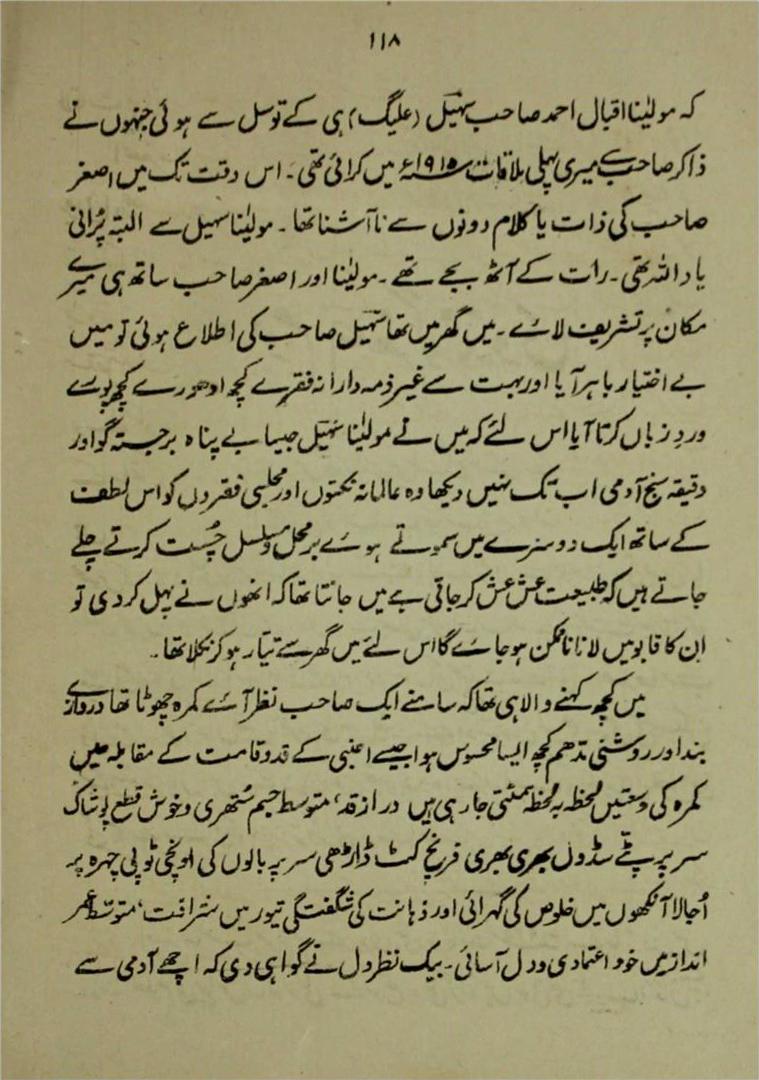 ۱۱۸
کہ مولیٰنا اقبال احمد صاحب سہیل (علیگ) ہی کے توسل سے ہوئی جنہوں نے
ذاکر صاحب سے میری پہلی ملاقات ۱۹۱۵ء میں کرائی تھی۔ اس وقت تک میں اصغر
صاحب کی ذات یا کلام دونوں سے ناآشنا تھا۔ مولیٰنا سہیل سے البتہ پُرانی
یاد اللہ تھی۔ رات کے آٹھ بجے تھے۔ مولیٰنا اور اصغر صاحب ساتھ ہی میرے
مکان پر تشریف لائے۔ میں گھر میں تھا سہیل صاحب کی اطلاع ہوئی تو میں
بے اختیار باہر آیا اور بہت سے غیر ذمہ دارانہ فقرے کچھ ادھورے کچھ پورے
وردِ زباں کرتا آیا اس لئے کہ میں نے مولیٰنا سہیل جیسا بے پناہ برجستہ گو اور
دقیقہ سنج آدمی اب تک نہیں دیکھا وہ عالمانہ نکتوں اور مجلسی فقروں کو اس لطف
کے ساتھ ایک دوسرے میں سموتے ہوئے برمحل و مسلسل چُست کرتے چلے
جاتے ہیں کہ طبیعت عش عش کر جاتی ہے میں جانتا تھا کہ انھوں نے پہل کر دی تو
ان کا قابو میں لانا ناممکن ہو جائے گا اس لئے میں گھر سے تیار ہو کر نکلا تھا۔
میں کچھ کہنے والا ہی تھا کہ سامنے ایک صاحب نظر آئے کمرہ چھوٹا تھا دروازے
بند اور روشنی مدھم کچھ ایسا محسوس ہوا جیسے اجنبی کے قد و قامت کے مقابلہ میں
کمرہ کی وسعتیں لحظہ بہ لحظہ سمٹتی جا رہی ہیں دراز قد، متوسط جسم ستھری و خوش قطع پوشاک
سر پر پٹے سڈول بھری بھری فرنچ کٹ ڈاڑھی سر پر بالوں کی اونچی ٹوپی چہرہ پر
اُجالا آنکھوں میں خلوص کی گہرائی اور ذہانت کی شگفتگی تیور میں شرافت، متوسط عمر
انداز میں خود اعتمادی و دل آسائی۔ بیک نظر دل نے گواہی دی کہ اچھے آدمی سے